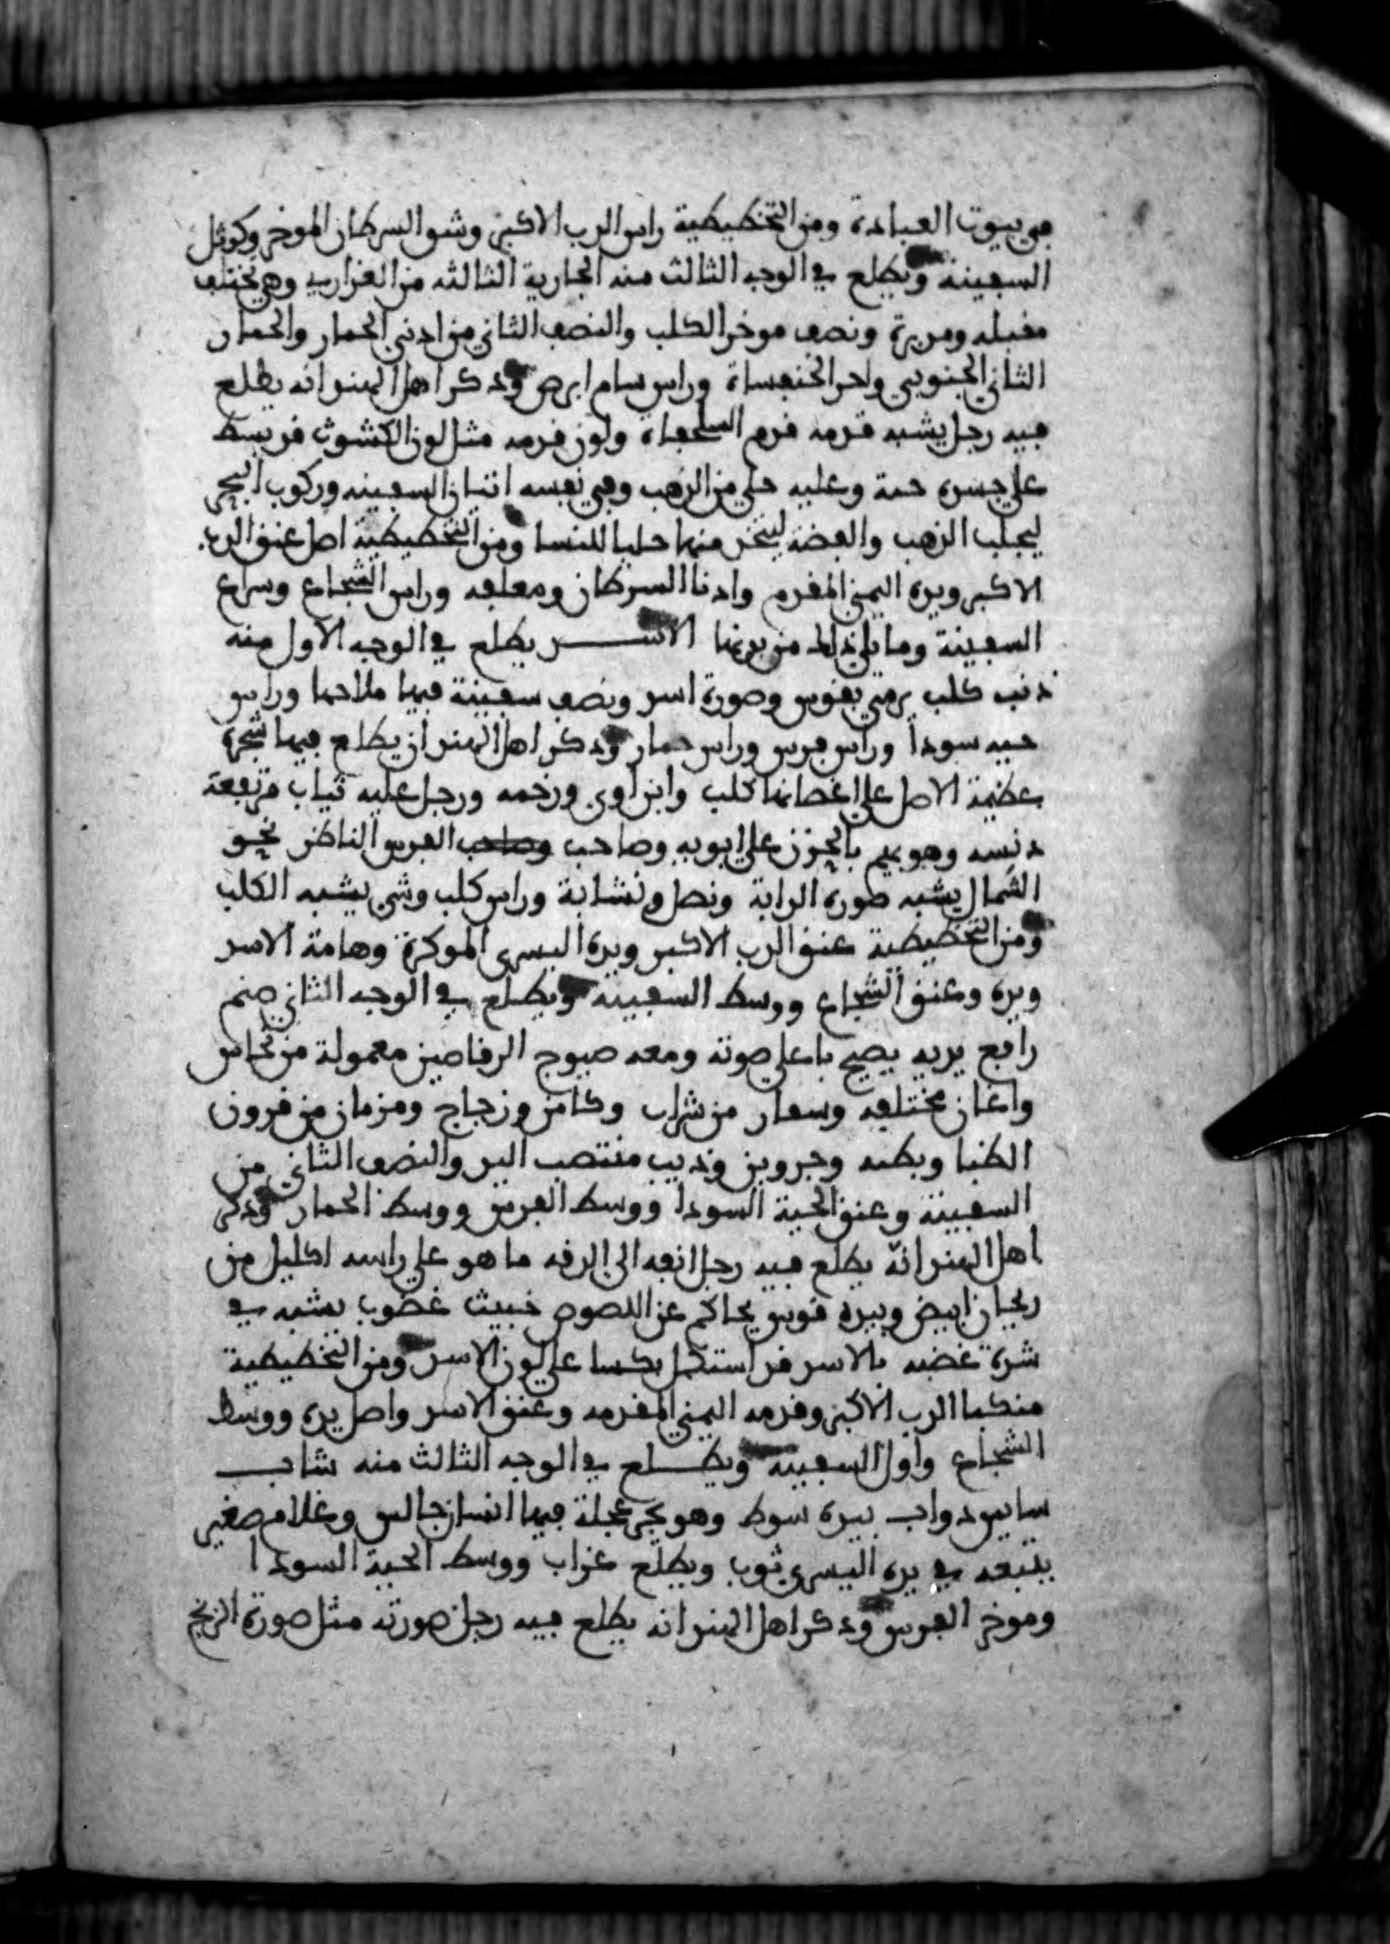 في بيوت العبادة ومن التخطيطية راس الدب الاكبر وشق السرطان الموخر وكوثل
السفينة ويطلع في الوجه الثالث منه الجارية الثالثه من العذارى وهي تختلف
مقبله ومدبرة ونصف موخر الكلب والنصف الثاني من ادنى الحمار والحمار
الثاني الجنوبي واحد الخنفساة وراس سام ابرص وذكر اهل الهند انه يطلع
فيه رجل يشبه قدمه قدم السلحفاة ولون قدمه مثل لون الكشوث قد بسط
على جسده حمة وعليه حلي من الذهب وفي نفسه اتيان السفينه وركوب البحر
ليجلب الذهب والفضه ليتخذ منها حليا للنسا ومن التخطيطية اصل عنق الدب
الاكبر ويده اليمنى المقدم وادنا السرطان ومعلفه وراس الشجاع وسراع
السفينة وما يلي ذلك من بدنها الاسد يطلع في الوجه الاول منه
ذنب كلب يرمي بقوس وصورة اسد ونصف سفينة فيها ملاحها وراس
حيه سودا وراس فرس وراس حمار وذكر اهل الهند ان يطلع فيها شجرة
عظيمة الاصل على اغصانها كلب وابن اوى ورخمه ورجل عليه ثياب مرتفعة
دنسه وهو يهم بالحزن على ابويه وصاحب وصاحب الفرس الناظر نحو
الشمال يشبه صورة الرابة ونصل ونشابة وراس كلب وشي يشبه الكلب
ومن التخطيطية عنق الدب الاكبر ويده اليسرى الموكرة وهامة الاسد
ويده وعنق الشجاع ووسط السفينه ويطلع في الوجه الثاني صنم
رافع يديه يصيح باعلى صوته ومعه صيوج الرقاصين معمولة من نحاس
واغان مختلفه وسعار من شراب وكاس وزجاج ومزمار من قرون
الظبا وبطه وجروين وديب منتصب اليد والنصف الثاني من
السفينة وعنق الحية السودا ووسط الفرس ووسط الحمار وذكر
اهل الهند انه يطلع فيه رجل انفه الى الرقه ما هو على راسه اكليل من
ريحان ابيض وبيده قوس يحاكم عن اللصوص خبيث غضوب يشبه في
شدة غضبه بالاسد قد استكمل بكسا على لون الاسد ومن التخطيطية
منكبا الدب الاكبر وقدمه اليمنى المقدمه وعنق الاسد واصل يده ووسط
الشجاع واول السفينه ويطلع في الوجه الثالث منه شاب
سايس دواب بيده سوط وهو يجر عجلة فيها انسان جالس وغلام صغير
يتبعه في يده اليسرى ثوب ويطلع غراب ووسط الحية السودا
وموخر الفرس وذكر اهل الهند انه يطلع فيه رجل صورته مثل صورة الزنج